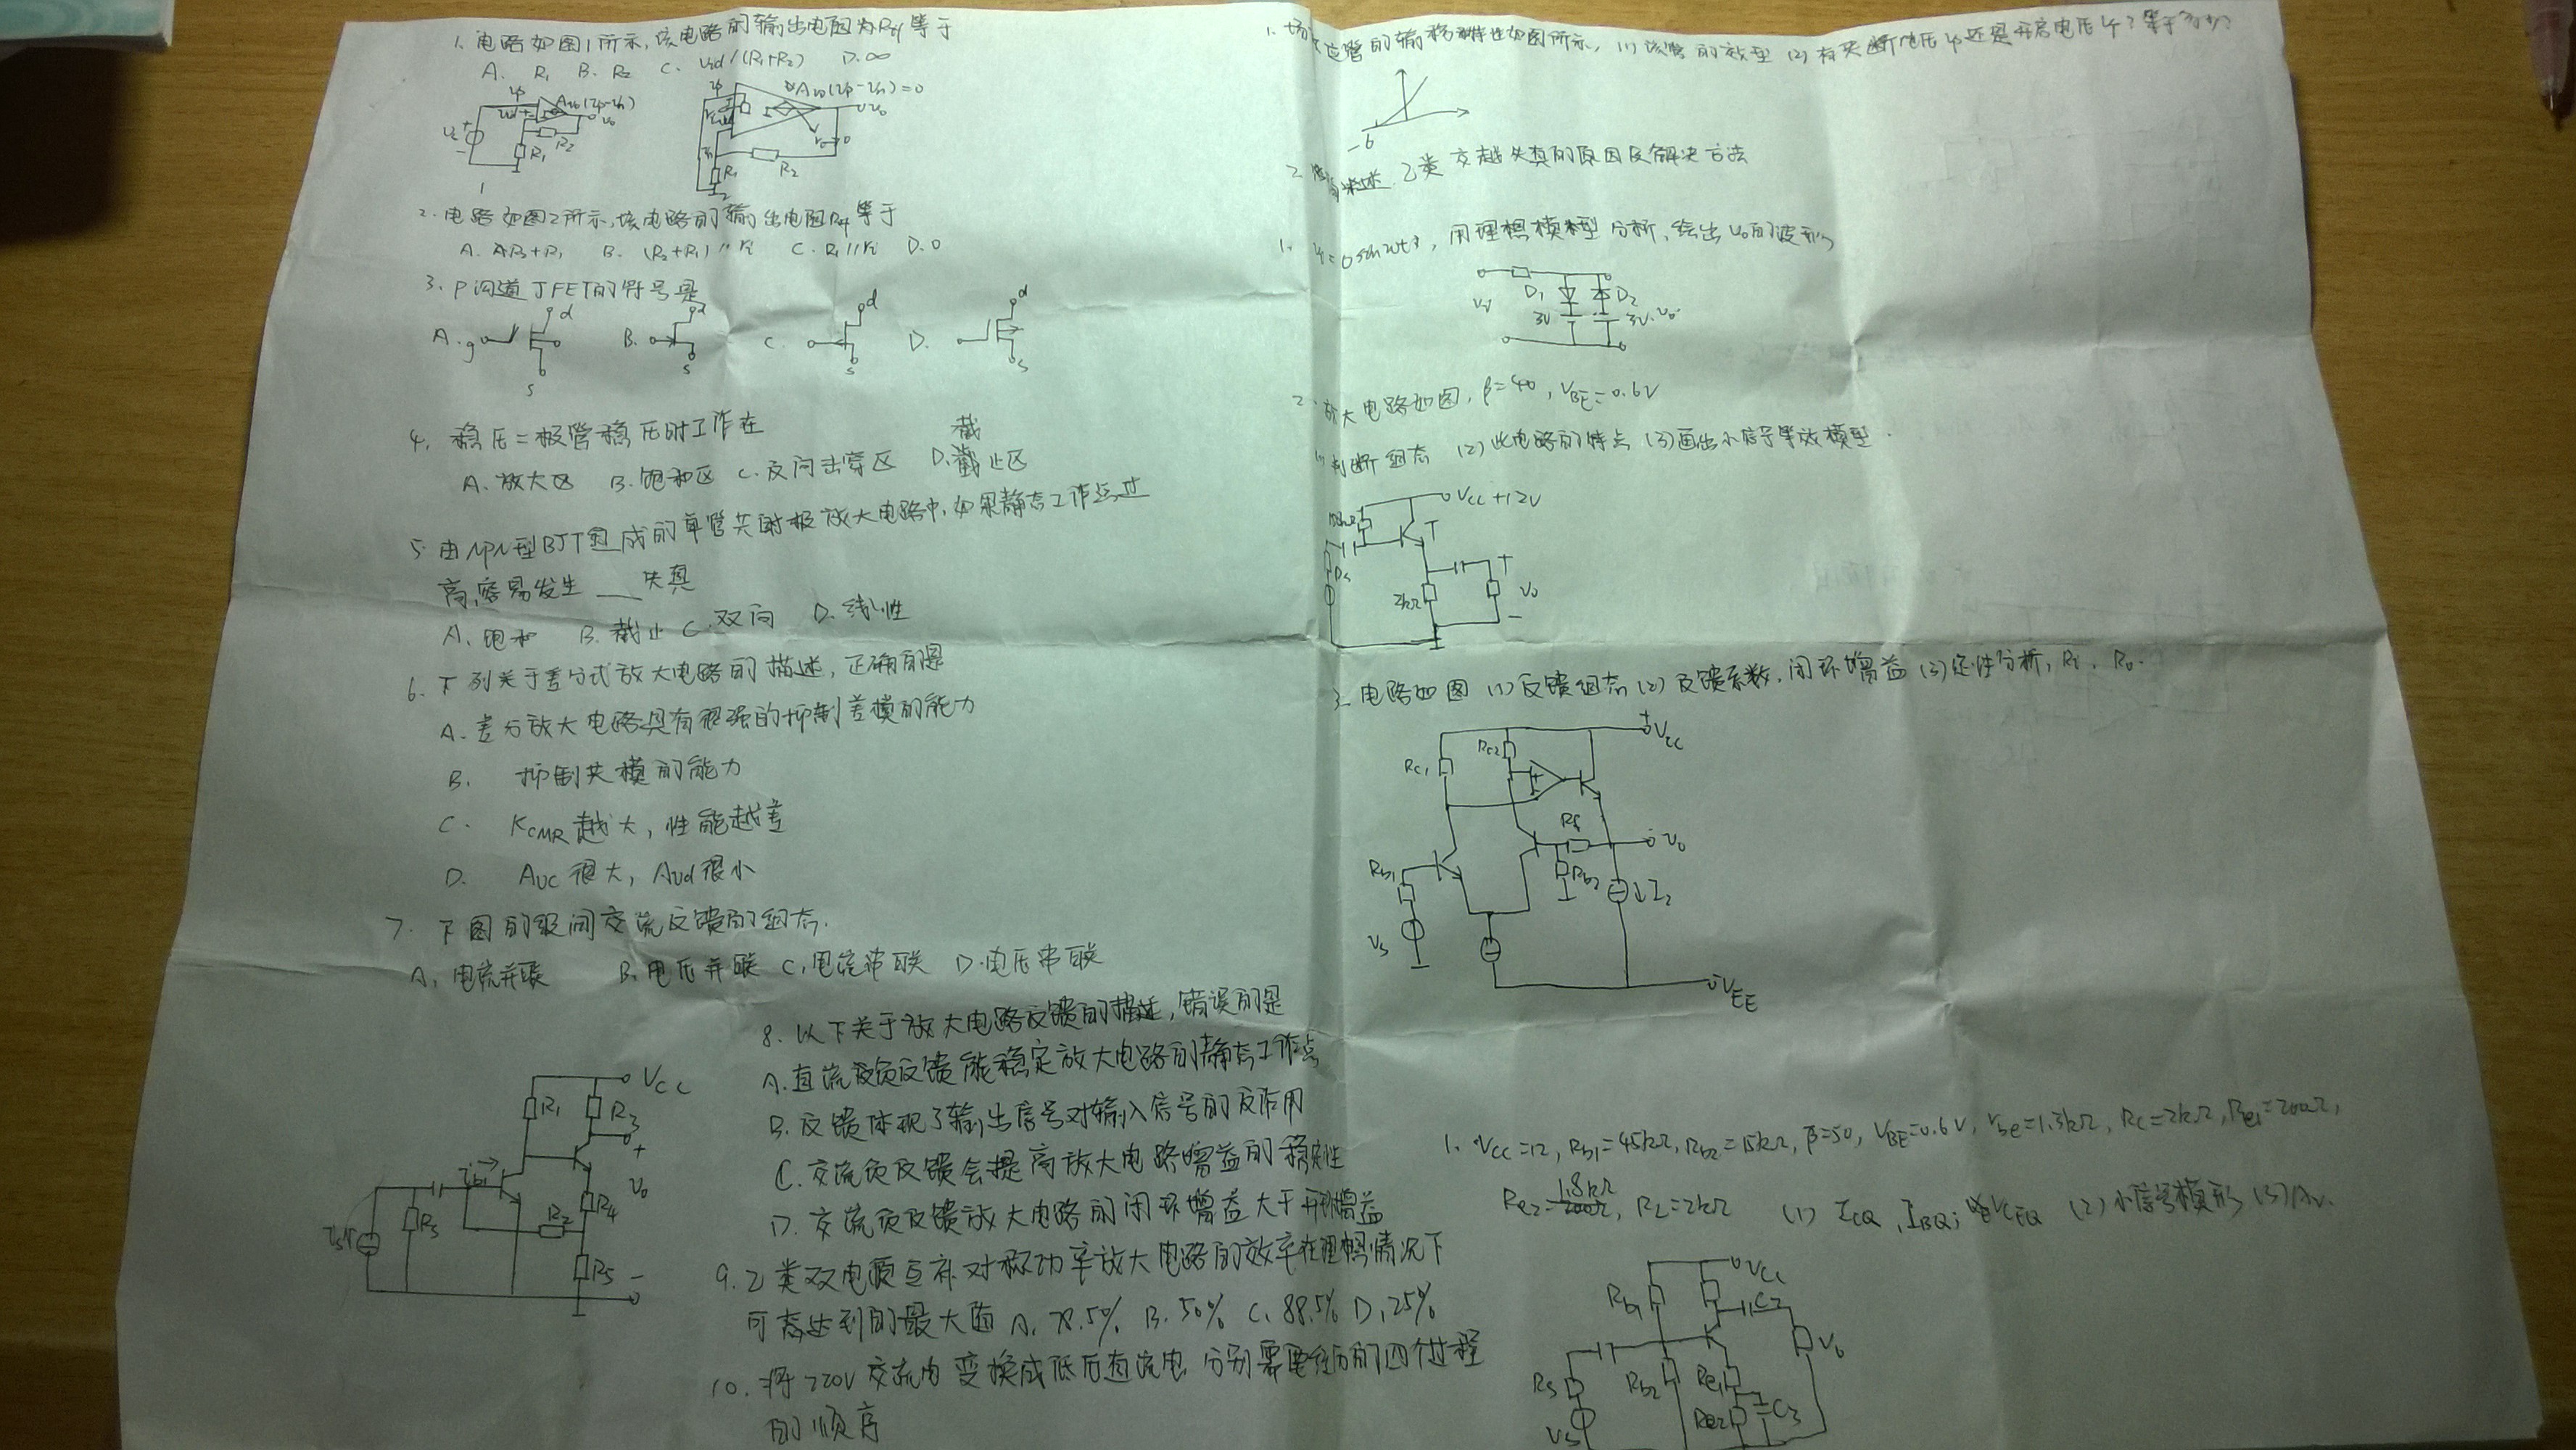 1. 电路如图1所示,该电路的输出电阻为Rif等于
A. R1 B. R2 C. Vid/(R1+R2) D. ∞
Avo(vp-vn)
R1
R2
1
Avo(vp-vn)=0
R1
R2
2
2. 电路如图2所示,该电路的输出电阻Rof等于
B. (R2+R1)//ri C. R1//ri D. 0
3. P沟道JFET的符号是
A. g d s
B. d s
C. d s
D. d s
4. 稳压二极管稳压时工作在
截
A. 放大区 B. 饱和区 C. 反向击穿区 D. 截止区
5. 由NPN型BJT组成的单管共射极放大电路中,如果静态工作点过
高,容易发生 ___ 失真
A. 饱和 B. 截止 C. 双向 D. 线性
6. 下列关于差分式放大电路的描述,正确的是
A. 差分放大电路具有很强的抑制差模的能力
B. 抑制共模的能力
C. KCMR越大,性能越差
D. AVC很大,AVd很小
7. 下图的级间交流反馈的组态.
A. 电流并联 B. 电压并联 C. 电流串联 D. 电压串联
VCC
R1
R3
ib1
+
vo
R4
Rs
R2
R5
-
8. 以下关于放大电路反馈的描述,错误的是
A. 直流负反馈能稳定放大电路的静态工作点
B. 反馈体现了输出信号对输入信号的反作用
C. 交流负反馈会提高放大电路增益的稳定性
D. 交流负反馈放大电路的闭环增益大于开环增益
9. 乙类双电源互补对称功率放大电路的效率在理想情况下
可高达到的最大值 A. 78.5% B. 50% C. 88.5% D. 25%
10. 将220V交流电变换成低压直流电 分别需要经历的四个过程
的顺序
1. 场效应管的转移特性如图所示, (1) 该管的类型 (2) 有夹断电压Vp还是开启电压VT?等于多少?
-6
2. 简述乙类交越失真的原因及解决方法
1. 用理想模型分析,绘出vo的波形
vi
D1
D2
3V
3V
vo
2. 放大电路如图, β=40, VBE=0.6V
(1) 判断组态 (2) 此电路的特点 (3) 画出小信号等效模型.
VCC +12V
T
2kΩ
+
vo
-
3. 电路如图 (1) 反馈组态 (2) 反馈系数,闭环增益 (3) 定性分析, Ri, Ro.
+VCC
Rc1
Rc2
Rf
vo
Rb1
Rb2
I2
vs
-VEE
1. VCC=12, Rb1=45kΩ, Rb2=15kΩ, β=50, VBE=0.6V, rbe=1.3kΩ, Rc=2kΩ, Re1=200Ω,
Re2=1.8kΩ, RL=2kΩ (1) ICQ, IBQ, VCEQ (2) 小信号模形 (3) Av.
Rb1
C2
Vo
Rs
Rb2
Re1
Re2
C3
Vs